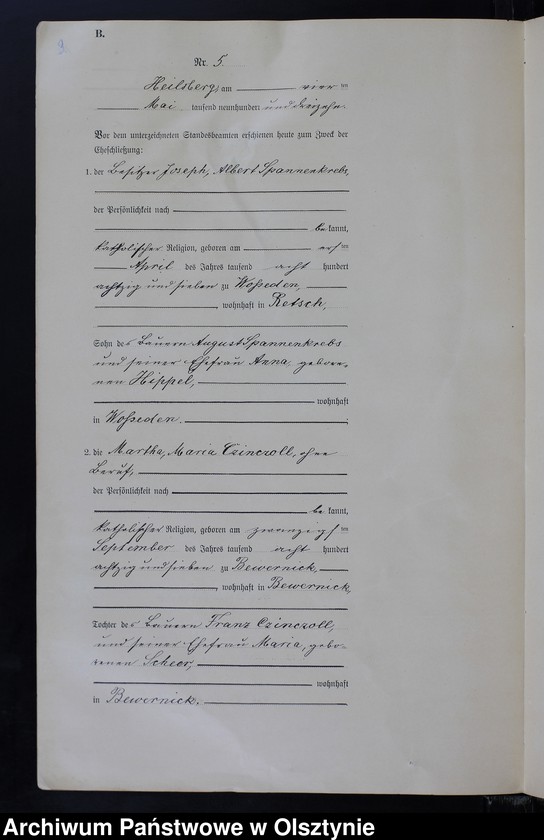 B.
9
Nr. 5.
Heilsberg, am vier ten
Mai tausend neunhundert und dreizehn.
Vor dem unterzeichneten Standesbeamten erschienen heute zum Zweck der
Eheschließung:
1. der Besitzer Joseph, Albert Spannenkrebs,
der Persönlichkeit nach
be kannt,
katholischer Religion, geboren am ers ten
April des Jahres tausend acht hundert
achtzig und sieben zu Wosseden,
, wohnhaft in Retsch,
Sohn des Bauern August Spannenkrebs
und seiner Ehefrau Anna, gebore-
nen Hippel,
wohnhaft
in Wosseden.
2. die Martha, Maria Czinczoll, ohne
Beruf,
der Persönlichkeit nach
be kannt,
katholischer Religion, geboren am zwanzigs ten
September des Jahres tausend acht hundert
achtzig und sieben zu Bewernick,
, wohnhaft in Bewernick,
Tochter des Bauern Franz Czinczoll,
und seiner Ehefrau Maria, gebo-
renen Scheer,
wohnhaft
in Bewernick.
Archiwum Państwowe w Olsztynie